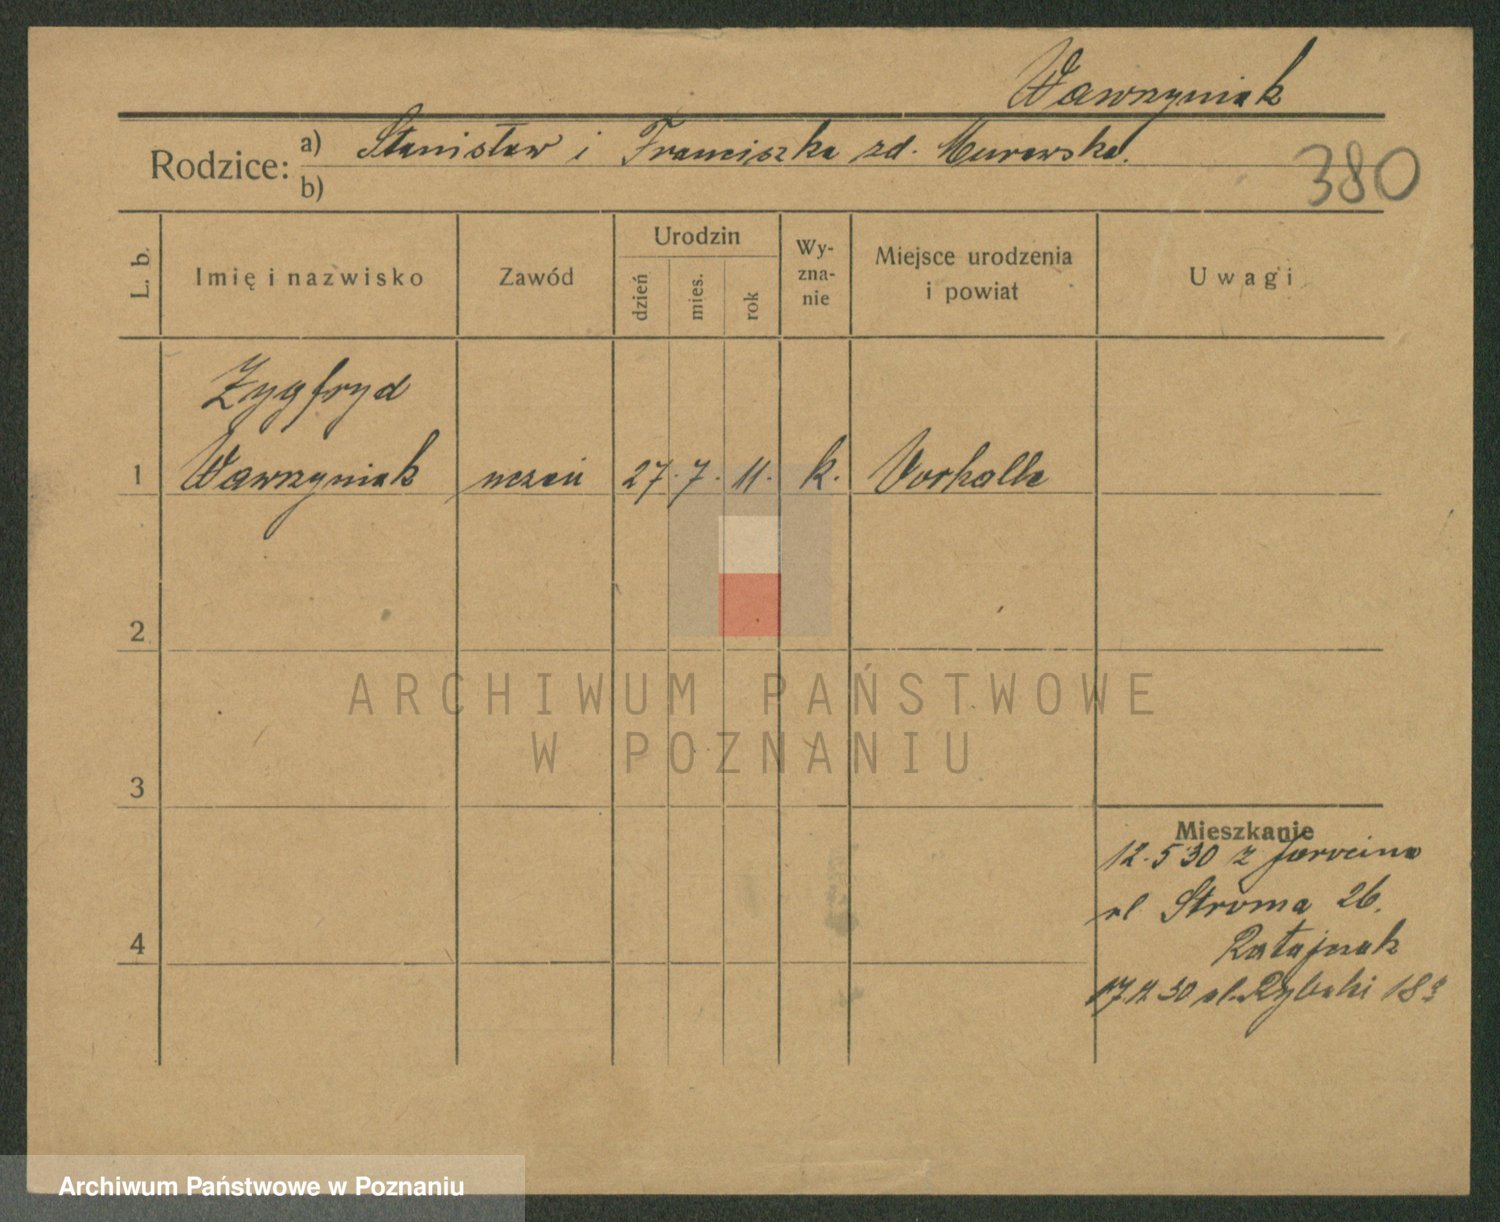 Wawrzyniak
Rodzice: a) Stanisław i Franciszka zd. Murawska.
b)
380
L. b.
Imię i nazwisko
Zawód
Urodzin
dzień
mies.
rok
Wy-
zna-
nie
Miejsce urodzenia
i powiat
Uwagi
Zygfryd
1 Wawrzyniak uczeń 27. 7. 11. k. Vorhalle
2
3
4
Mieszkanie
12.5 30 z Jarocina
ul. Stroma 26.
Ratajczak
ul. Rybaki
ARCHIWUM PAŃSTWOWE
W POZNANIU
Archiwum Państwowe w Poznaniu